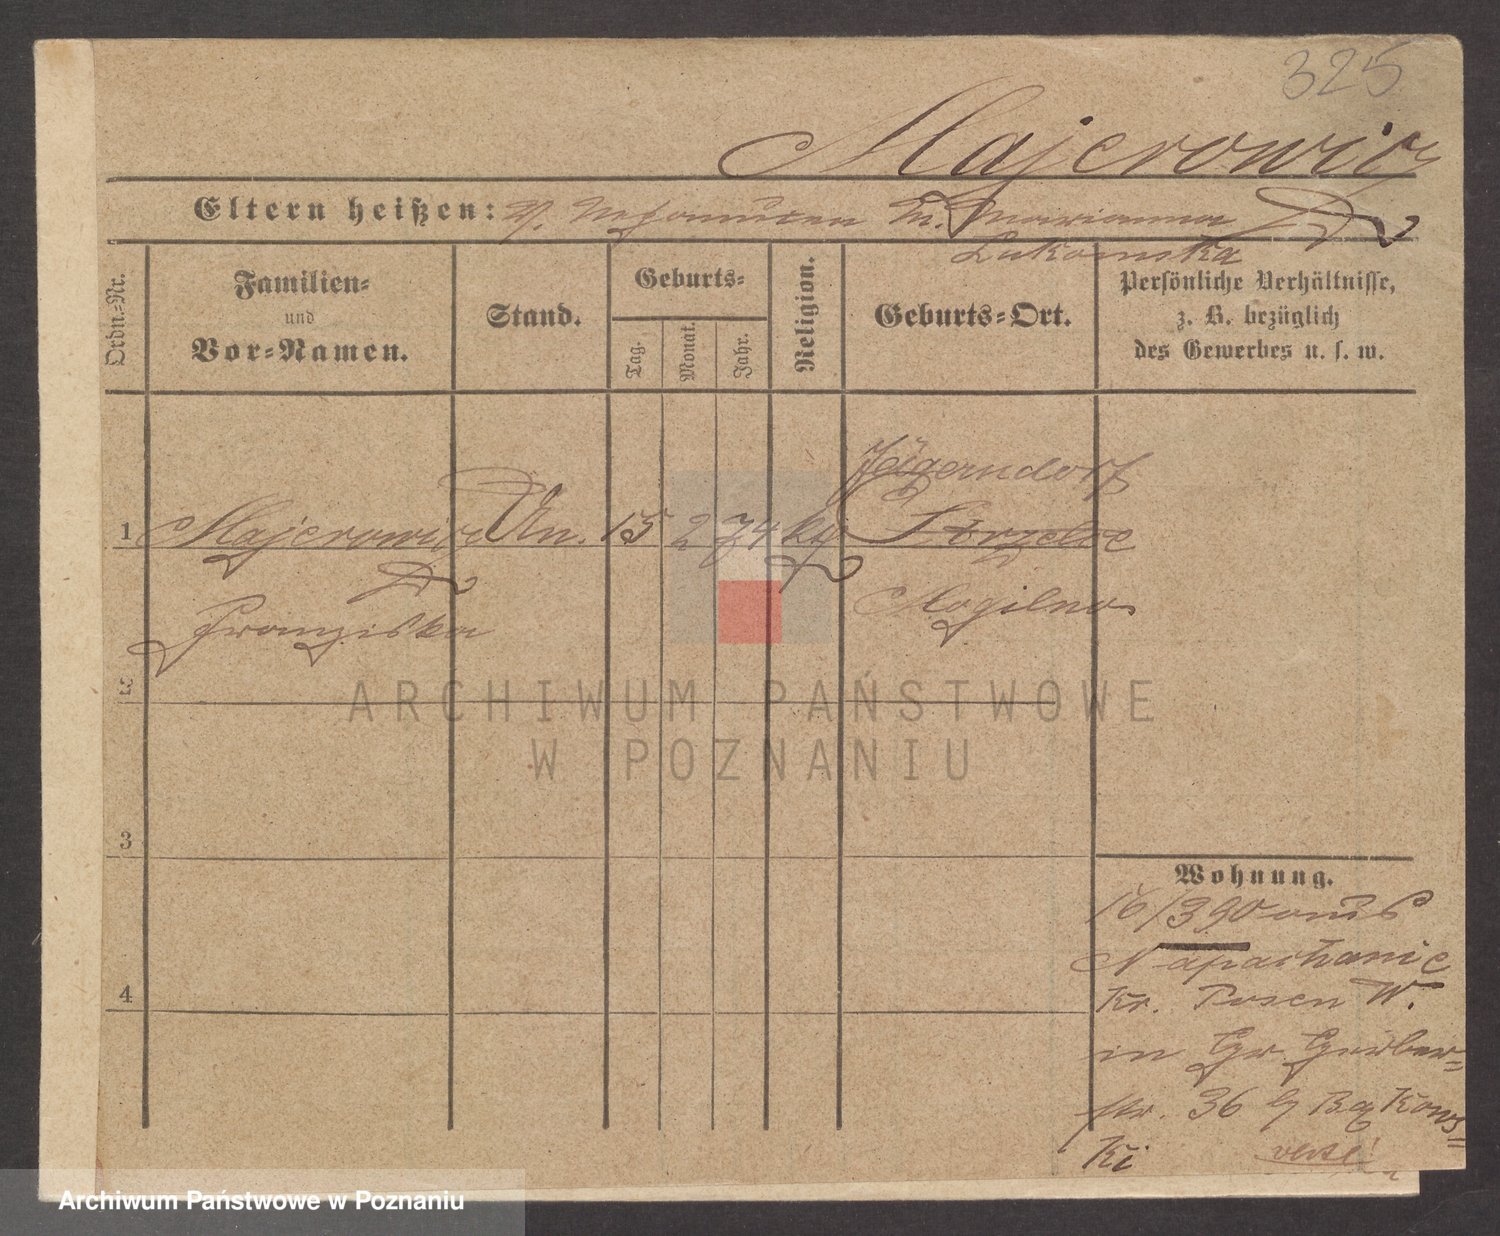 325
Majerowicz
Eltern heißen: V. Nepomucen M. Marianna
Lukomska
Ordn.=Nr.
Familien=
und
Vor=Namen.
Stand.
Geburts=
Tag.
Monat.
Jahr.
Religion.
Geburts=Ort.
Persönliche Verhältnisse,
z. B. bezüglich
des Gewerbes u. s. w.
Jägerndorf
1 Majerowicz Un. 15 2 74 kg Strzelce
Franziska Mogilno
2
3
4
Wohnung.
16/3 90 aus
Napachanie
Kr. Posen W.
in Gr Gerber=
str. 36 b Bąkows=
ki
verte!
ARCHIWUM PAŃSTWOWE
W POZNANIU
Archiwum Państwowe w Poznaniu